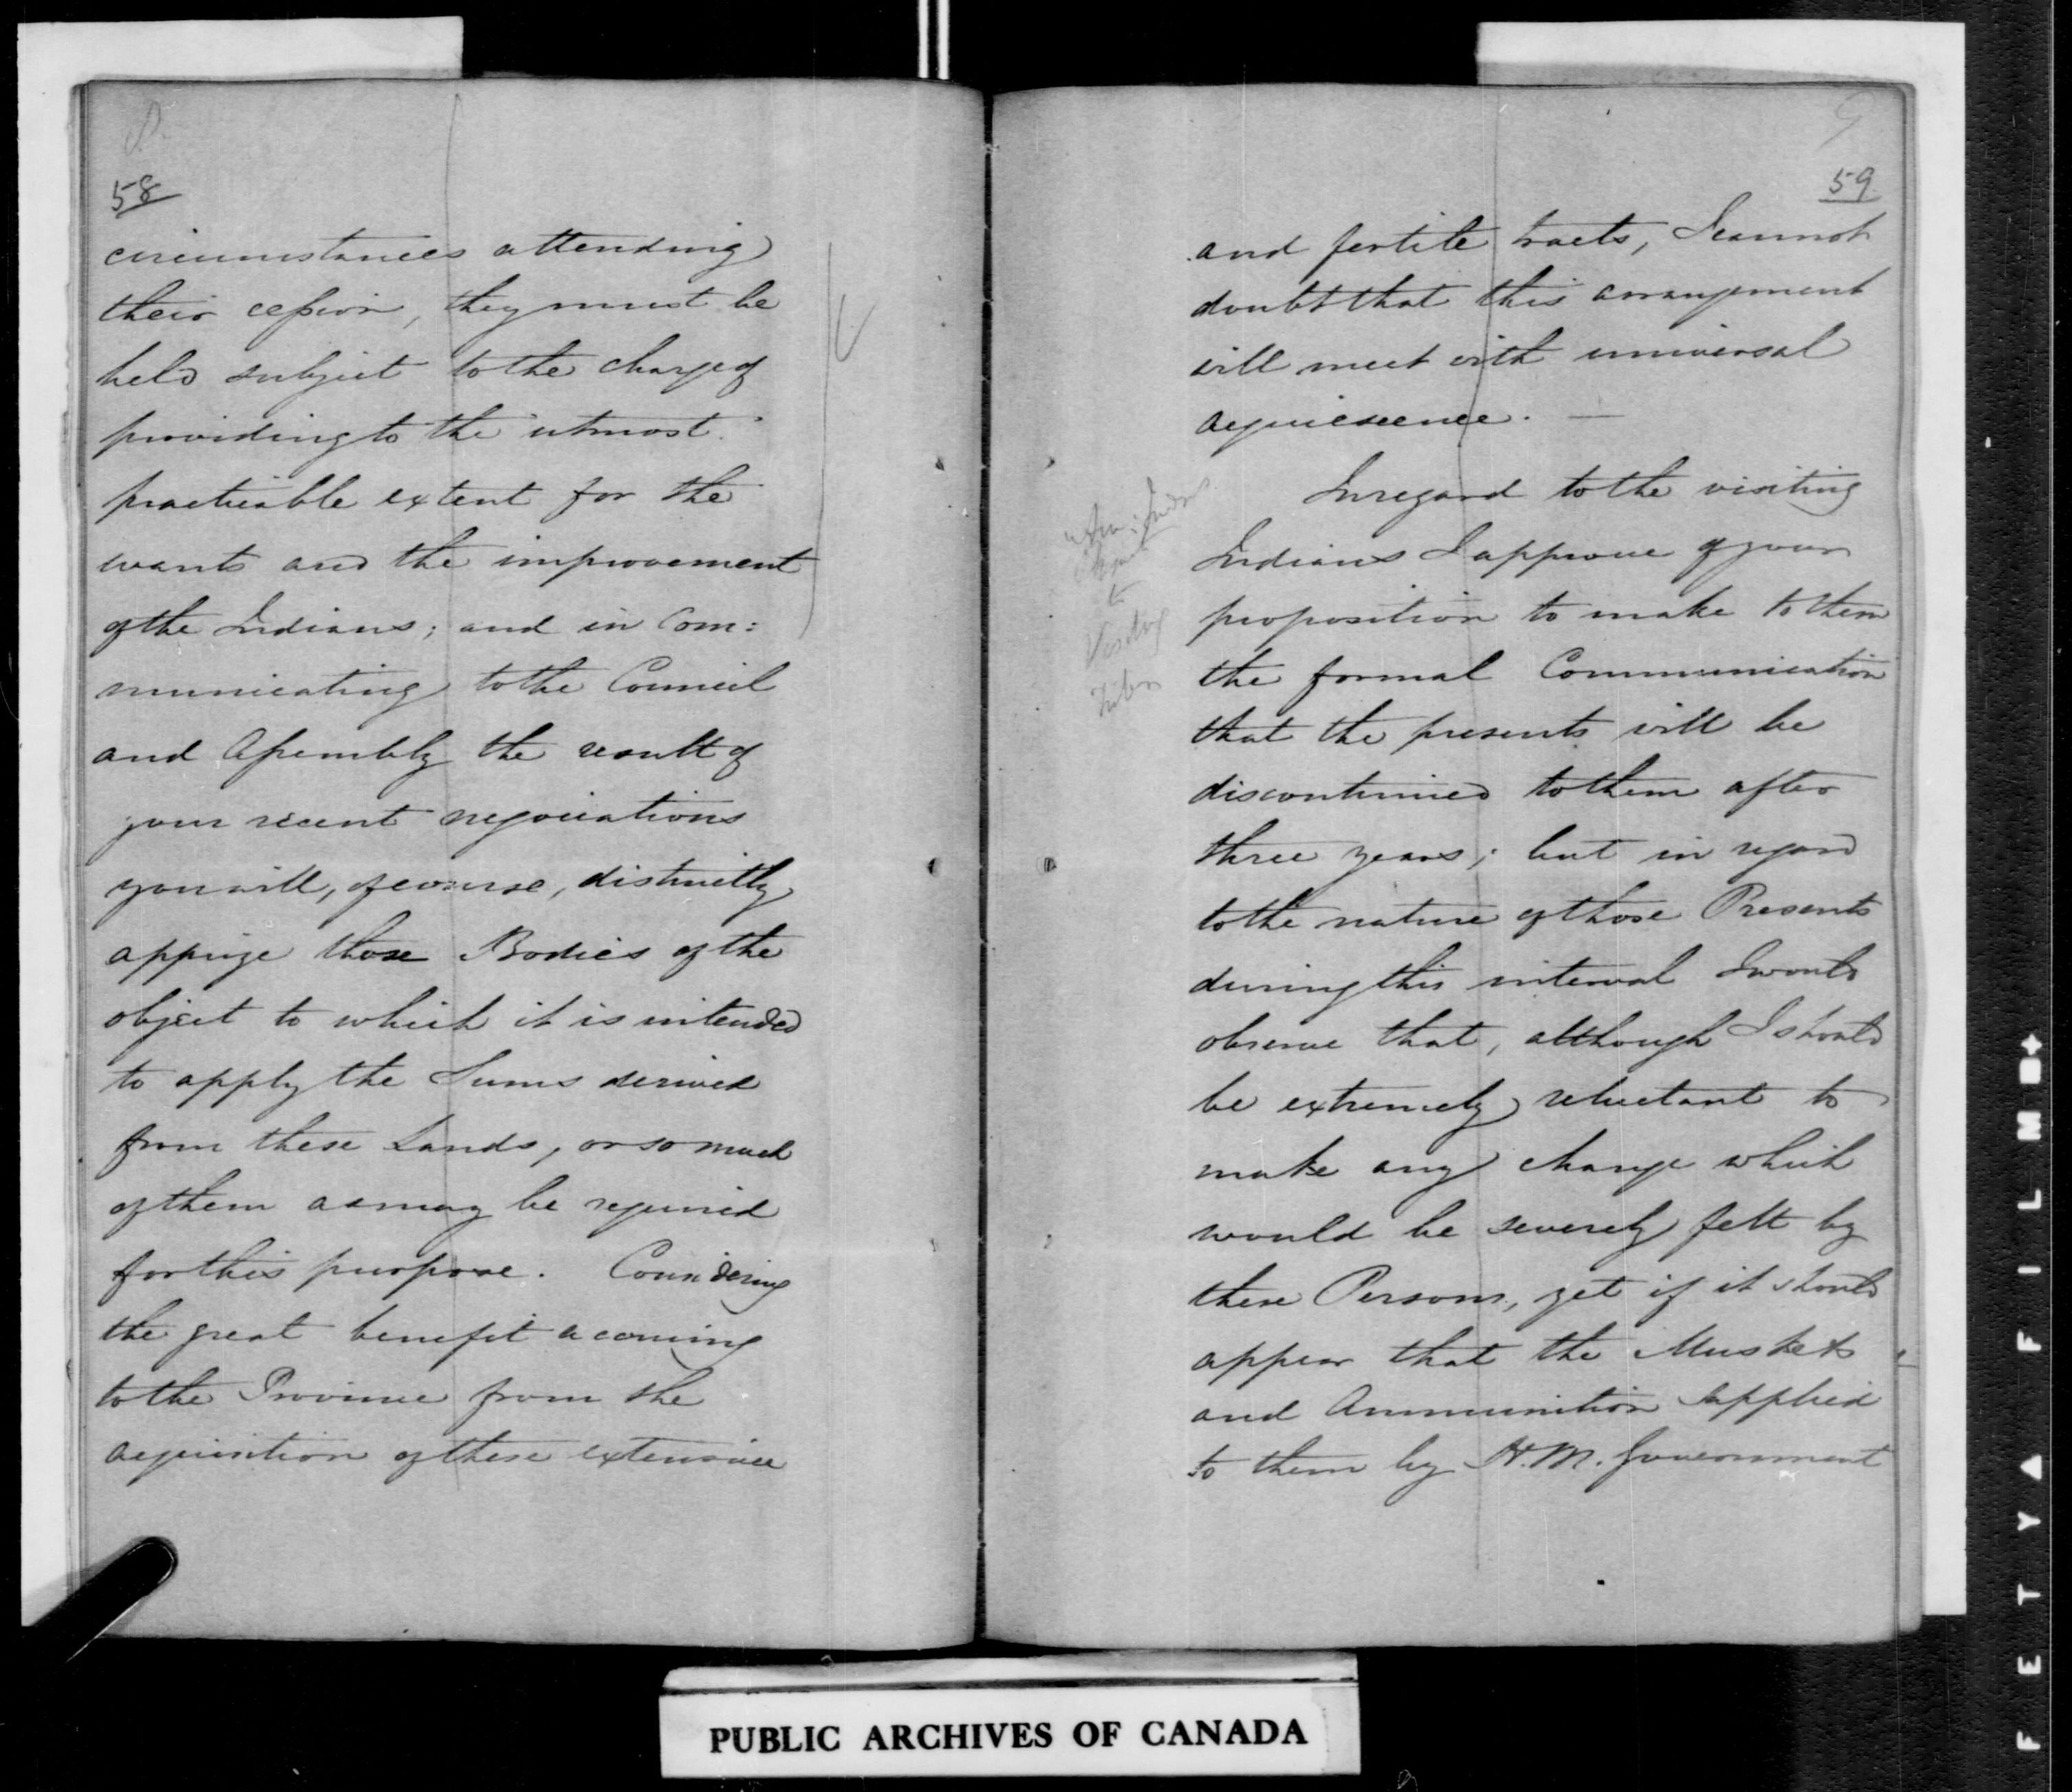 58
circumstances attending
their cession, they must be
held subject to the charge of
providing to the utmost
practicable extent for the
wants and the improvement
of the Indians; and in Com:
municating to the Council
and Assembly the result of
your recent negociations
you will, of course, distinctly
apprize those Bodies of the
object to which it is intended
to apply the Sums derived
from these Lands, or so much
of them as may be required
for this purpose. Considering
the great benefit accruing
to the Province from the
acquisition of these extensive
59
and fertile tracts, I cannot
doubt that this arrangement
will meet with universal
acquiescence. —
In regard to the visiting
Indians I approve of your
proposition to make to them
the formal Communication
that the presents will be
discontinued to them after
three years; but in regard
to the nature of those Presents
during this interval I would
observe that, although I should
be extremely reluctant to
make any change which
would be severely felt by
these Persons, yet if it should
appear that the Muskets
and Ammunition Supplied
to them by H.M. Government
to
Visiting
Tribes
PUBLIC ARCHIVES OF CANADA
SAFETY FILM